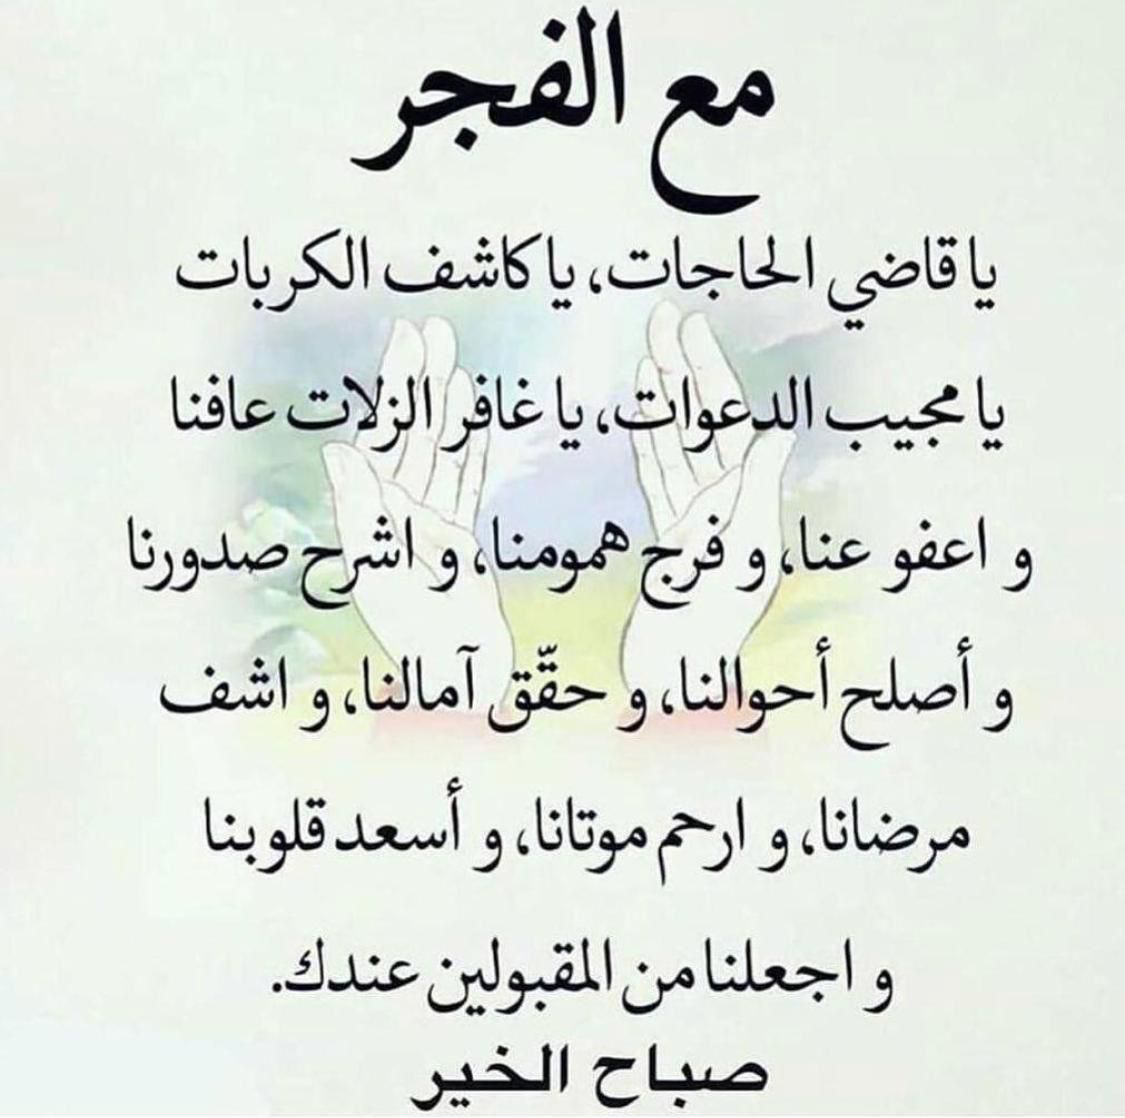 مع الفجر
يا قاضي الحاجات، يا كاشف الكربات
يا مجيب الدعوات، يا غافر الزلات عافنا
و اعفو عنا، و فرج همومنا، و اشرح صدورنا
و أصلح أحوالنا، و حقّق آمالنا، و اشف
مرضانا، و ارحم موتانا، و أسعد قلوبنا
و اجعلنا من المقبولين عندك.
صباح الخير